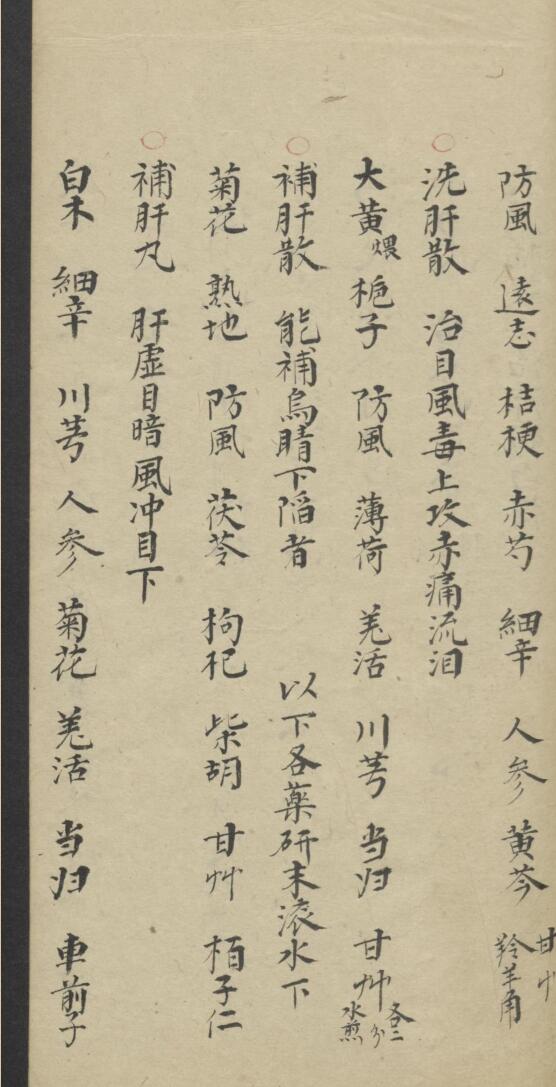 防風 遠志 桔梗 赤芍 細辛 人參 黄芩 甘艸 羚羊角
○洗肝散 治目風毒上攻赤痛流泪
大黄煨 梔子 防風 薄荷 羌活 川芎 当归 甘艸 各二分 水煎
○補肝散 能補烏睛下陷者 以下各藥研末滚水下
菊花 熟地 防風 茯苓 枸杞 柴胡 甘艸 栢子仁
○補肝丸 肝虛目暗風冲目下
白术 細辛 川芎 人參 菊花 羌活 当归 車前子